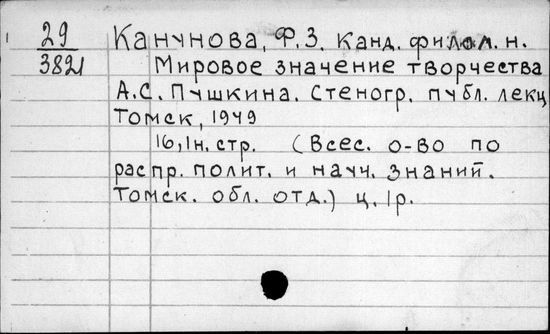 29 Канунова, Ф.З. Канд. филол. н.
3821 Мировое значение творчества
А.С. Пушкина. Стеногр. публ. лекц
Томск, 1949
16, 1 н. стр. (Всес. о-во по
распр. полит. и науч. знаний.
Томск. обл. отд.) ц. 1 р.